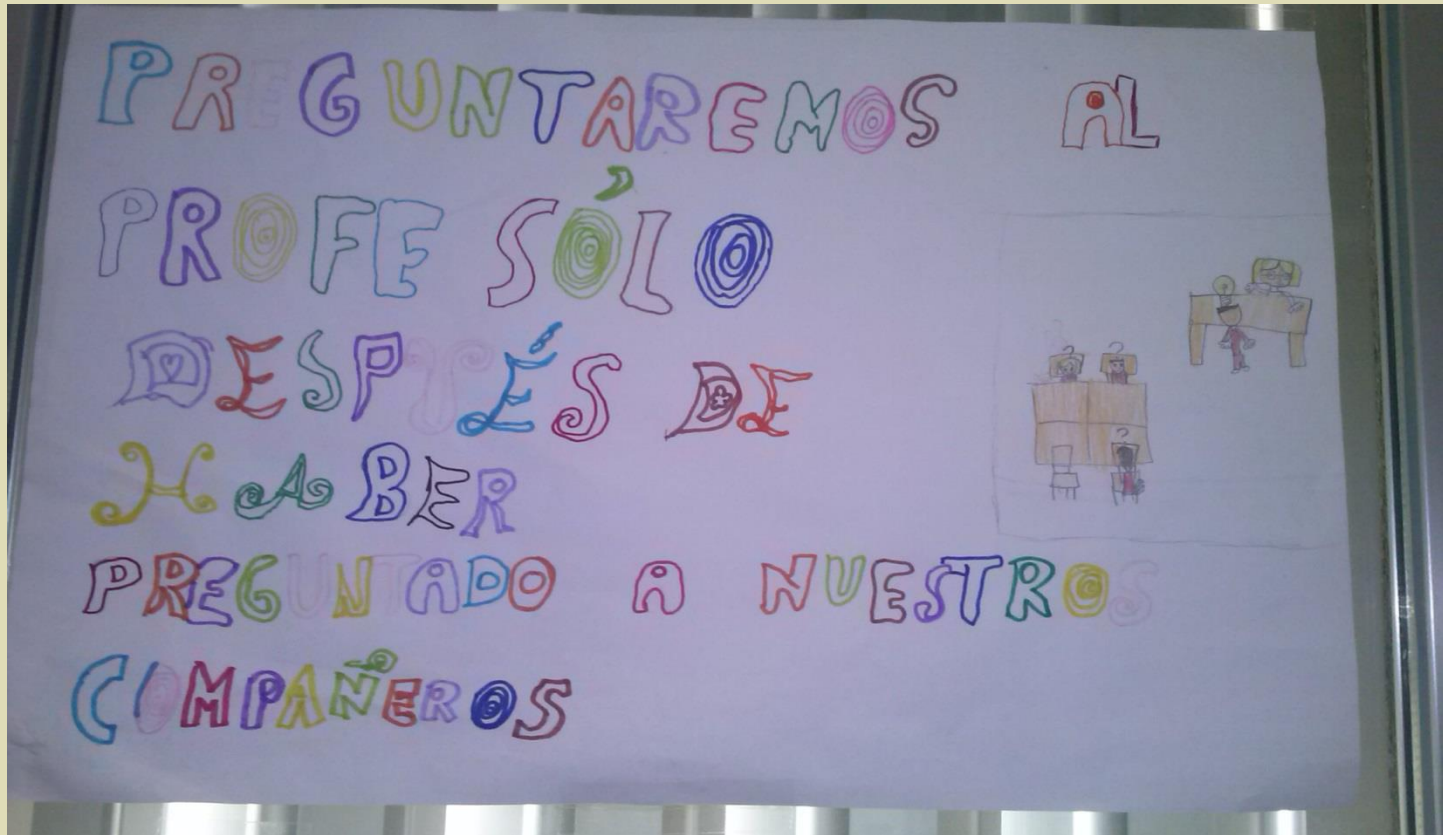 PREGUNTAREMOS AL
PROFE SÓLO
DESPUÉS DE
HABER
PREGUNTADO A NUESTROS
COMPAÑEROS